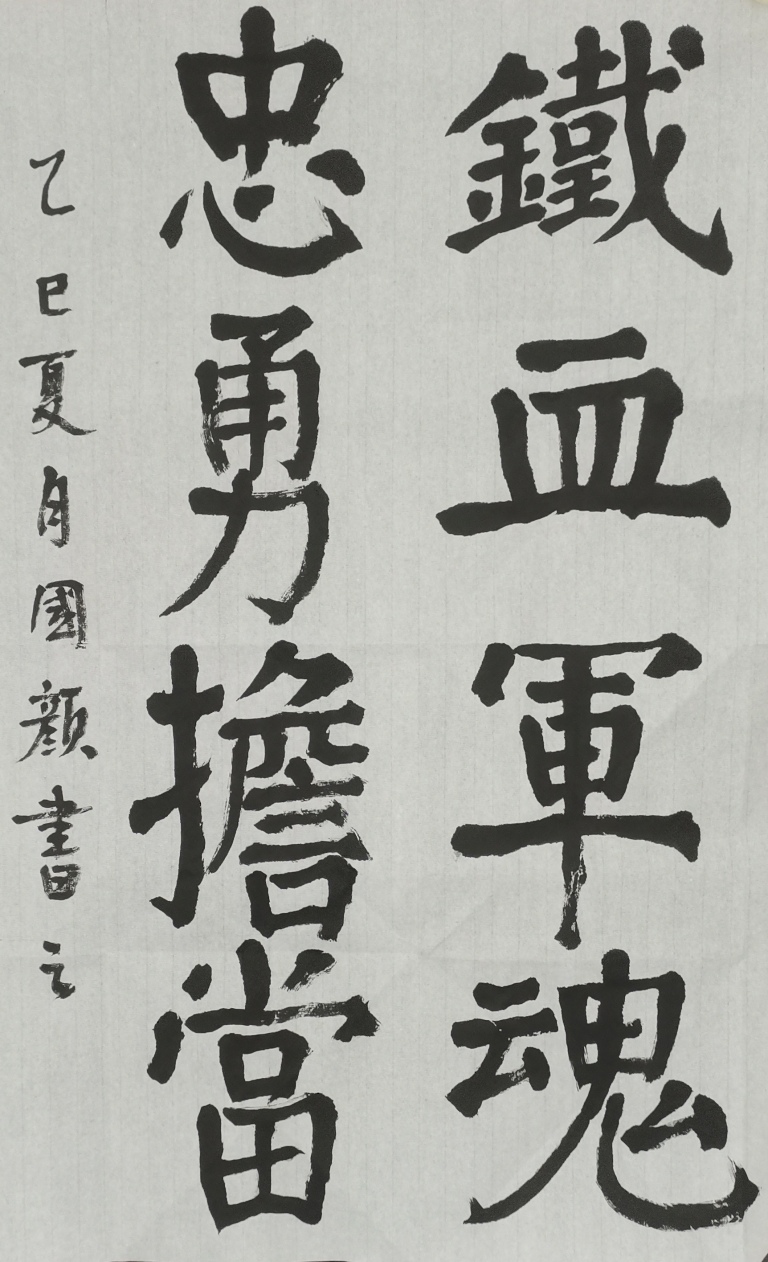 鐵血軍魂
忠勇擔當
乙巳夏月國顏書之